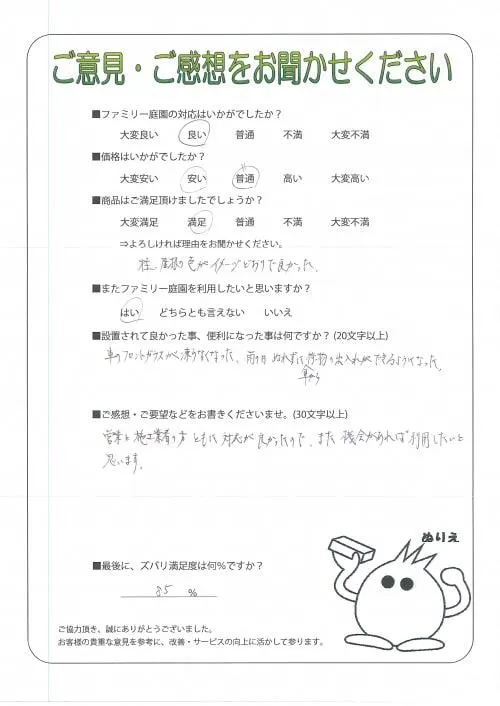 ご意見・ご感想をお聞かせください
■ファミリー庭園の対応はいかがでしたか？
大変良い 良い 普通 不満 大変不満
■価格はいかがでしたか？
大変安い 安い 普通 高い 大変高い
■商品はご満足頂けましたでしょうか？
大変満足 満足 普通 不満 大変不満
⇒よろしければ理由をお聞かせください。
柱、屋根の色がイメージどおりで良かった。
■またファミリー庭園を利用したいと思いますか？
はい どちらとも言えない いいえ
■設置されて良かった事、便利になった事は何ですか？（20文字以上）
車のフロントガラスが凍らなくなった、雨の日 ぬれずに荷物の出入れができるようになった。
車から
■ご感想・ご要望などをお書きくださいませ。（30文字以上）
営業と施工業者の方 ともに 対応が良かったので、また 機会があれば利用したいと
思います。
ぬりえ
■最後に、ズバリ満足度は何％ですか？
85 %
ご協力頂き、誠にありがとうございました。
お客様の貴重な意見を参考に、改善・サービスの向上に活かして参ります。